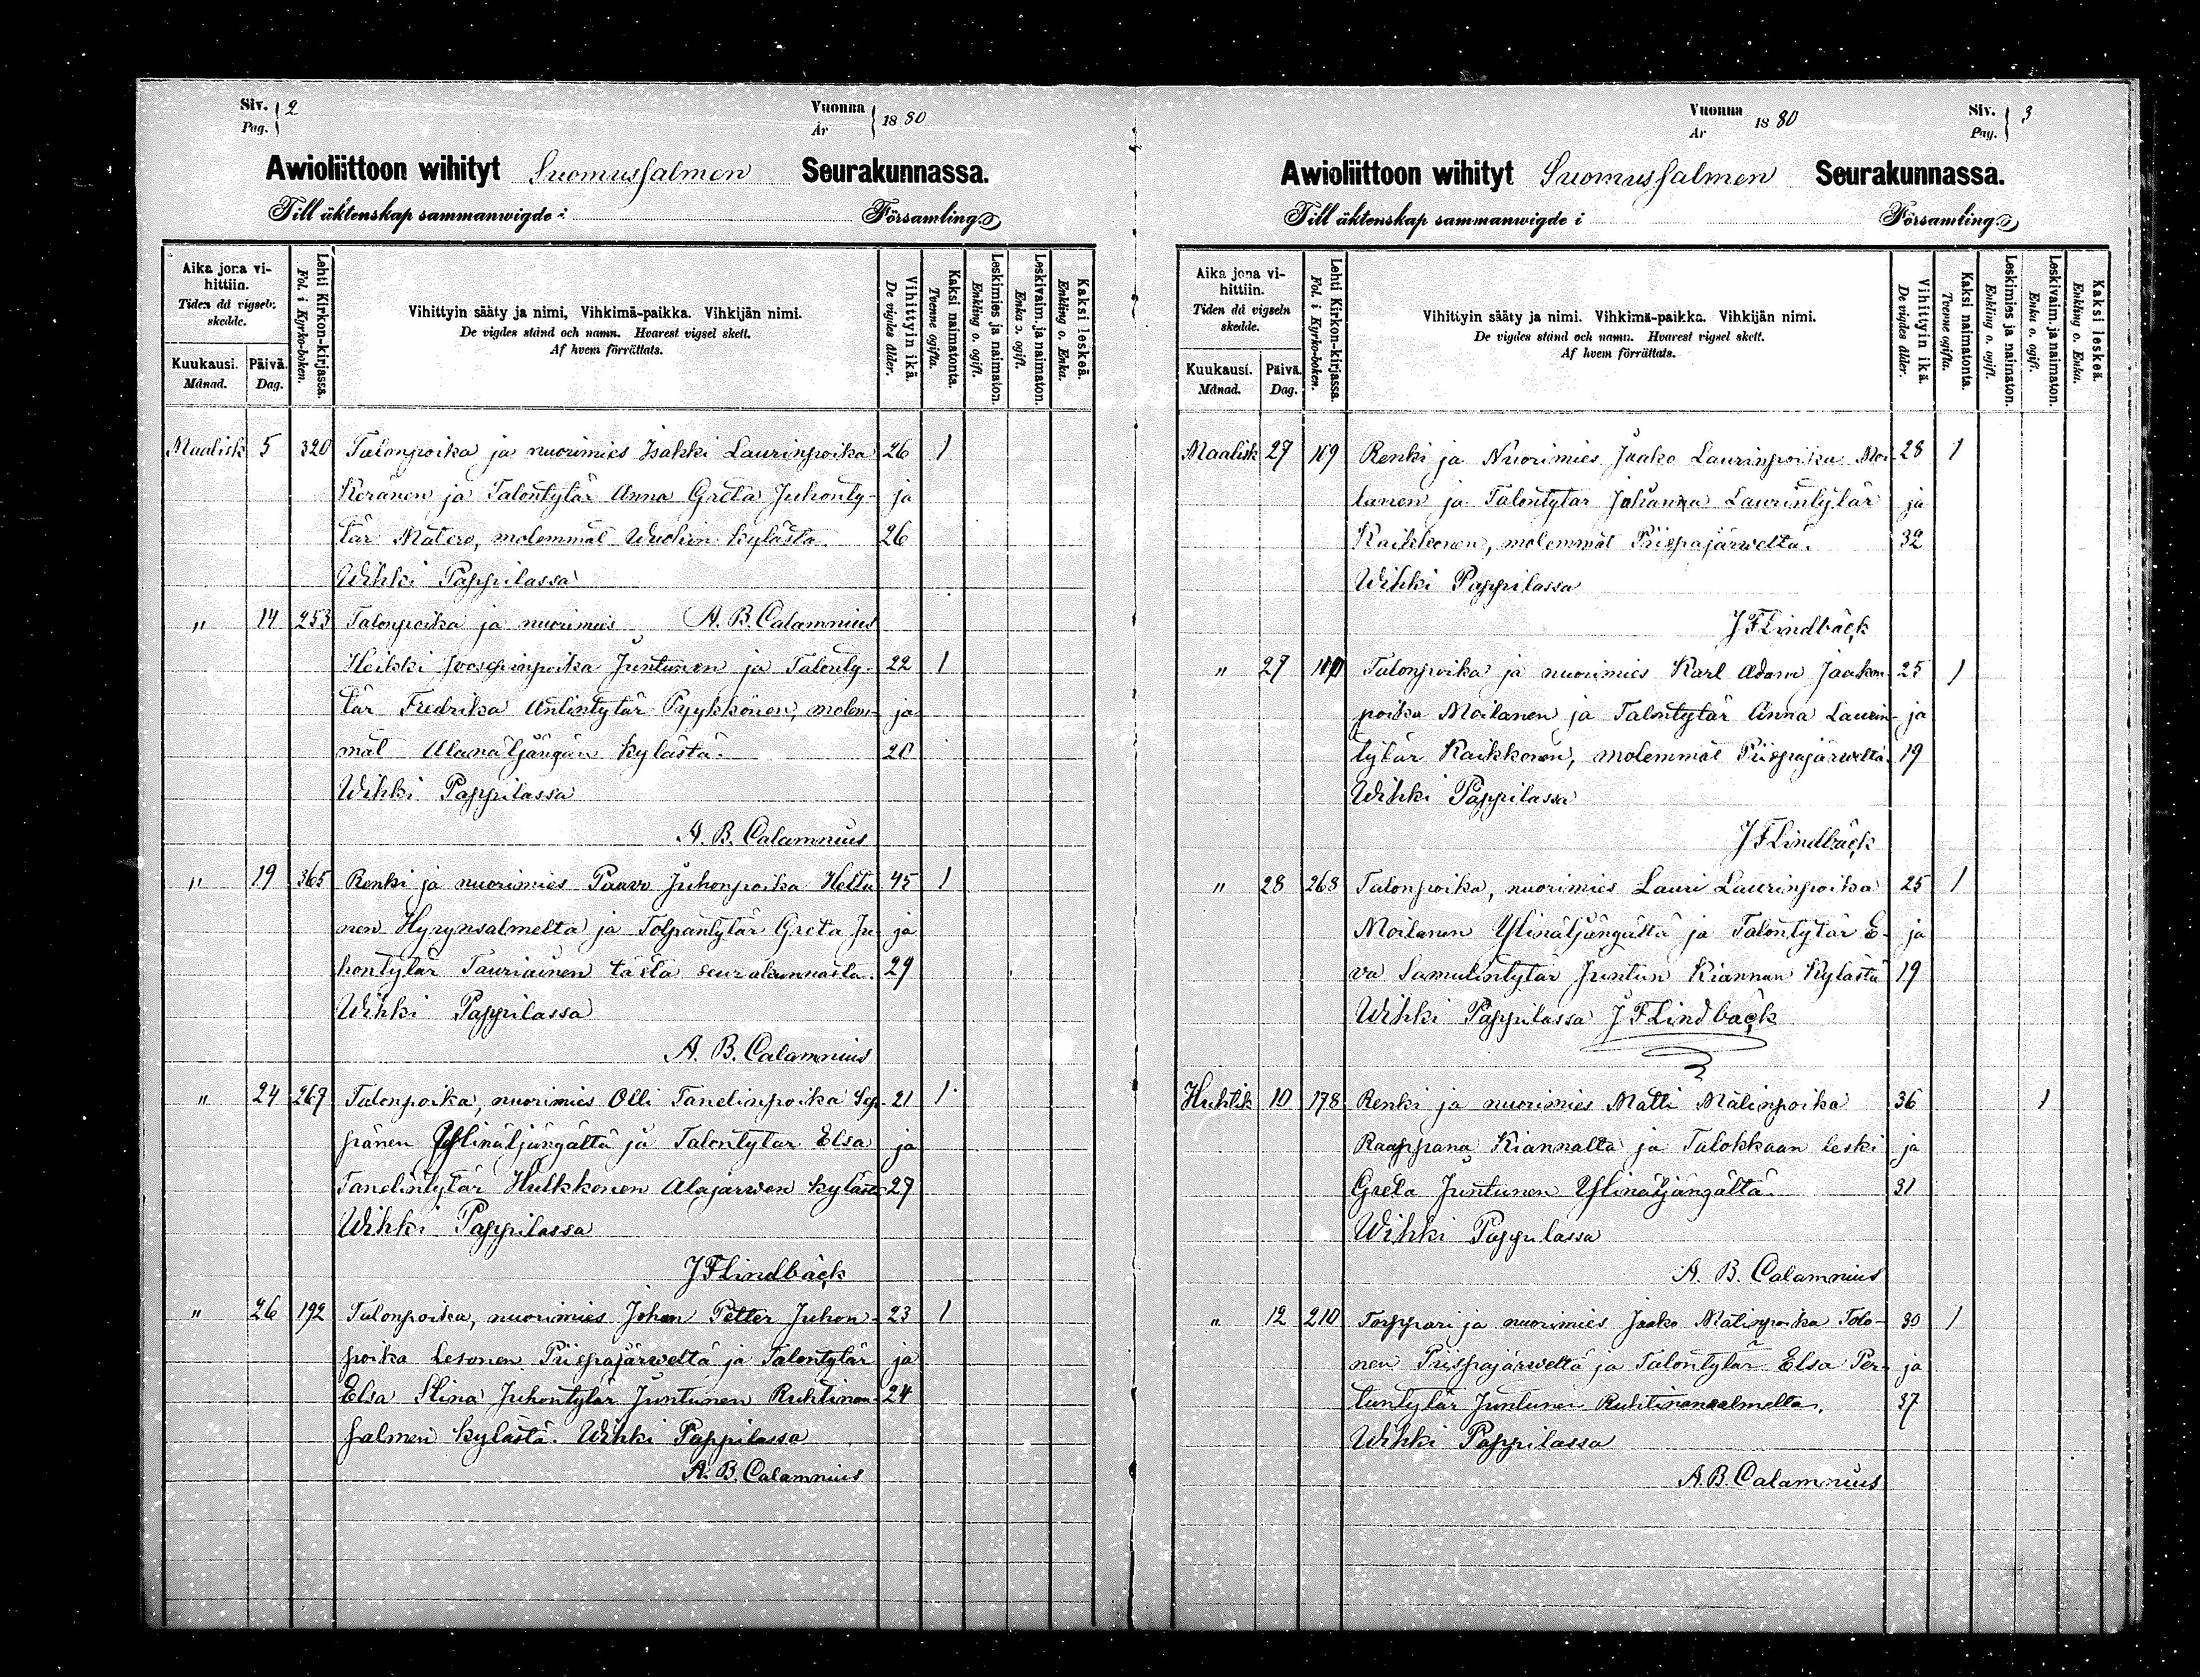 Siv. 2
Pag.
Vuonna
År 1880
Awioliittoon wihityt Suomussalmen Seurakunnassa.
Till äktenskap sammanwigde i Församling
Aika jona vihittiin.
Tiden då vigseln skedde.
Kuukausi.
Månad.
Päivä.
Dag.
Lehti Kirkon-kirjassa.
Fol. i Kyrko-boken.
Vihittyin sääty ja nimi, Vihkimä-paikka. Vihkijän nimi.
De vigdes stånd och namn. Hvarest vigsel skett.
Af hvem förrättats.
Vihittyin ikä.
De vigdes ålder.
Kaksi naimatonta.
Tvenne ogifta.
Leskimies ja naimaton.
Enkling o. ogift.
Leskivaim. ja naimaton.
Enka o. ogift.
Kaksi leskeä.
Enkling o. Enka.
Maalisk 5 320 Talonpoika ja nuorimies Isakki Laurinpoika 26 1
Keränen ja Talontytär Anna Greta Juhonty- ja
tär Matero, molemmat Wuokin kylästä. 26
Wihki Pappilassa
" 14 253 Talonpoika ja nuorimies A. B. Calamnius
Heikki Joosepinpoika Juntunen ja Talonty- 22 1
tär Fredrika Antintytär Pyykkönen, molem- ja
mat Alanäljängän kylästä. 20
Wihki Pappilassa
A. B. Calamnius
" 19 365 Renki ja nuorimies Paavo Juhonpoika Heltu 45 1
nen Hyrynsalmelta ja Torpantytär Greta Ju ja
hontytär Tauriainen tästä seurakunnasta. 29
Wihki Pappilassa
A. B. Calamnius
" 24 269 Talonpoika, nuorimies Olli Tanelinpoika Sep- 21 1
pänen Ylinäljängältä ja Talontytar Elsa ja
Tanelintytär Hulkkonen Alajarwen kyläst 27
Wihki Pappilassa
J F Lindbäck
" 26 192 Talonpoika, nuorimies Johan Petter Juhon- 23 1
poika Lesonen Piispajärweltä ja Talontytär ja
Elsa Stina Juhontytär Juntunen Ruhtinan- 24
salmen kylästä. Wihki Pappilassa
A. B. Calamnius
Vuonna
År 1880
Siv. 3
Pag.
Awioliittoon wihityt Suomussalmen Seurakunnassa.
Till äktenskap sammanwigde i Församling
Aika jona vihittiin.
Tiden då vigseln skedde.
Kuukausi.
Månad.
Päivä.
Dag.
Lehti Kirkon-kirjassa.
Fol. i Kyrko-boken.
Vihittyin sääty ja nimi. Vihkimä-paikka. Vihkijän nimi.
De vigdes stånd och namn. Hvarest vigsel skett.
Af hvem förrättats.
Vihittyin ikä.
De vigdes ålder.
Kaksi naimatonta.
Tvenne ogifta.
Leskimies ja naimaton.
Enkling o. ogift.
Leskivaim. ja naimaton.
Enka o. ogift.
Kaksi leskeä.
Enkling o. Enka.
Maalisk 27 Renki ja Nuorimies Jaako Laurinpoika Moi 28 1
lanen ja Talontytar Johanna Laurintytär ja
Kaikkonen, molemmat Piispajärweltä. 32
Wihki Pappilassa
J F Lindbäck
" 27 Talonpoika ja nuorimies Karl Adam Jaakon- 25 1
poika Moilanen ja Talontytär Anna Laurin- ja
tytär Kaikkonen, molemmat Piispajärweltä 19
Wihki Pappilassa
J F Lindbäck
" 28 268 Talonpoika, nuorimies Lauri Laurinpoika 25 1
Moilanen Ylinäljängältä ja Talontytär E- ja
va Samulintytär Juntun Kiannan Kylästä 19
Wihki Pappilassa J F Lindbäck
Huhtik 10 178 Renki ja nuorimies Matti Matinpoika 36 1
Raappana Kiannalta ja Talokkaan leski ja
Greta Juntunen Ylinäljängältä. 31
Wihki Pappilassa
A. B. Calamnius
" 12 210 Torppari ja nuorimies Jaako Matinpoika Tolo- 30 1
nen Piispajärweltä ja Talontytär Elsa Per- ja
tuntytär Juntunen Ruhtinansalmelta. 37
Wihki Pappilassa
A. B. Calamnius